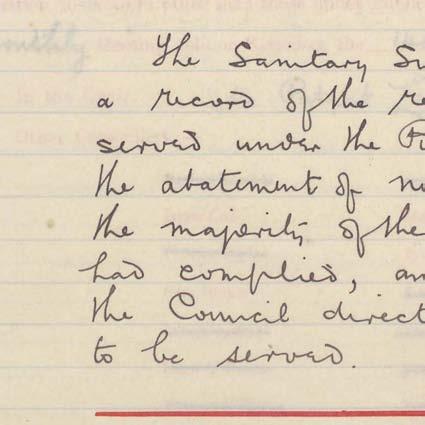 The Sanitary Su
a record of the re
served under the Pu
the abatement of nu
the majority of the
had complied, an
the Council direct
to be served.